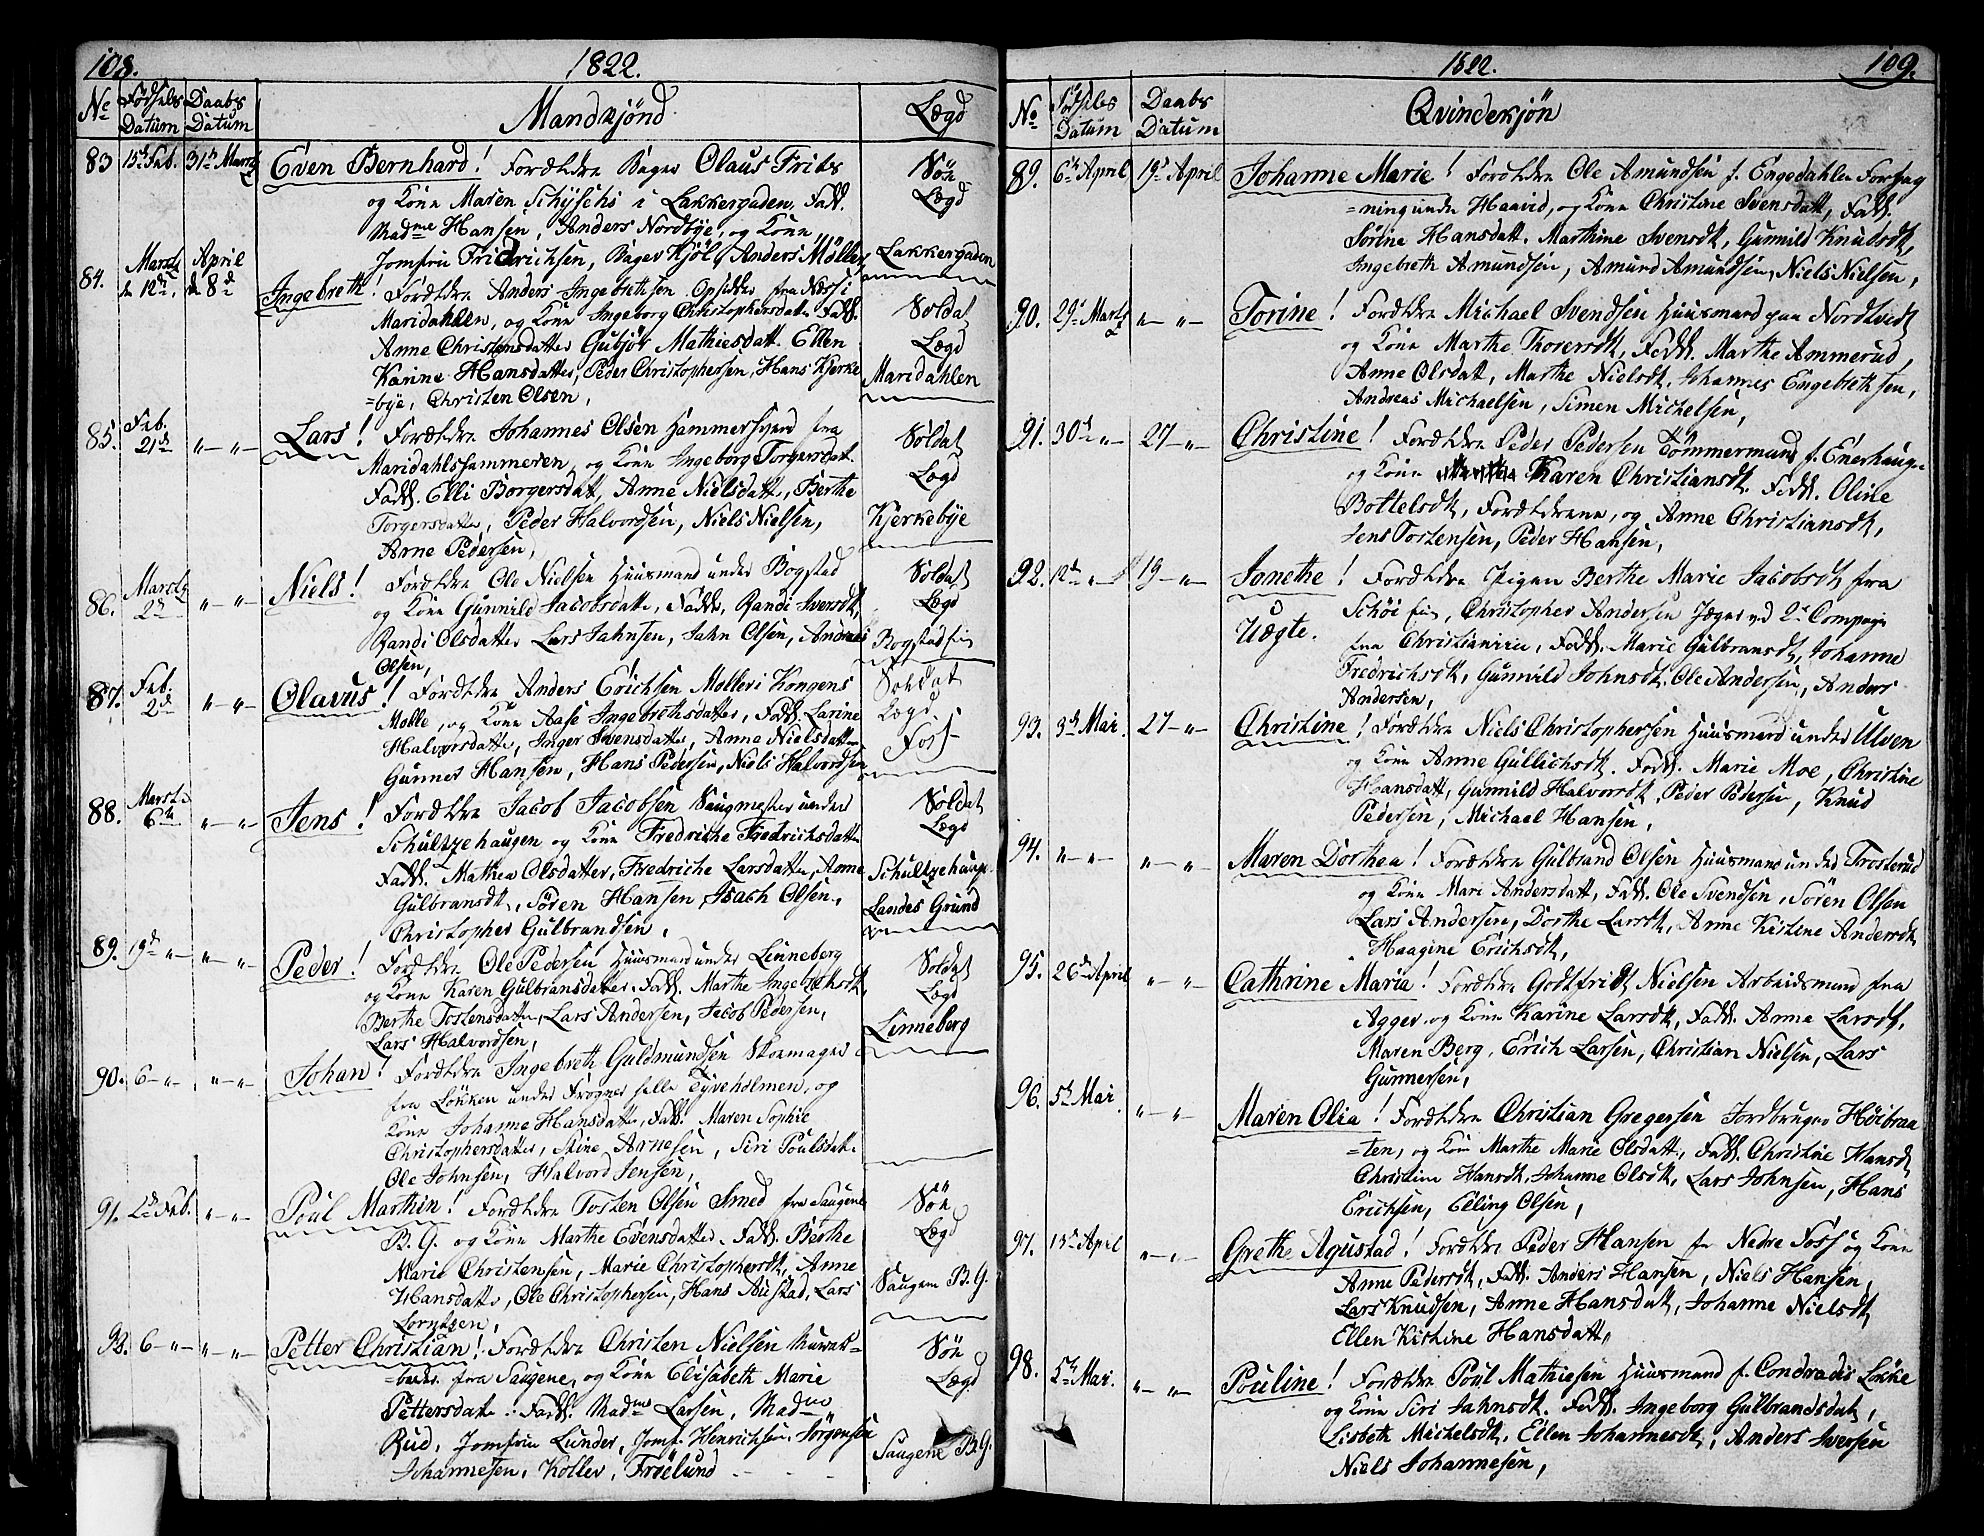 108.
1822.
No Fødsels Datum Daabs Datum Mandkjønd. Lægd
83 15de Feb. 31te Martz Even Bernhard! Forældre Bager Olaus Friis Söe
og Kone Maren Schjischs i Lakkergaden. Fadd. Lægd
Madme Hansen, Anders Nordbye, og Kone,
Jomfru Fridrichsen, Bager Hjöl, Anders Möller, Lakkergaden
84. Martz d. 12te. April d. 8de Ingebreth! Forældre Anders Ingebrethsen Opsidder fra Næss i Soldat
Maridahlen, og Kone Ingeborg Christophersdatter Fadd.
Anne Christensdatter Gubjör Mathiesdatt. Ellen Lægd
Karine Hansdatter, Peder Christophersen, Hans Kjerke Maridahlen
=bye, Christen Olsen,
85. Feb. 21de " — " — Lars! Forældre Johannes Olsen Hammersvend fra Soldat
Maridahlshammeren og Kone Ingeborg Torgersdat. Lægd
Fadd. Elli Borgersdat, Anne Nielsdatt, Berthe
Torgersdatter, Peder Halvordsen, Niels Nielsen, Kjerkebye
Arne Pedersen,
86. Martz 2de " — " — Niels! Forældre Ole Nielsen Huusmand under Bogstad Soldat
og Kone Gunnild Jacobsdatter, Fadd. Randi Svensdt, Lægd
Randi Olsdatter Lars Jahnsen, Jahn Olsen, Andreas Bogstad
Olsen,
87. Feb. 2de " — " — Olavus! Forældre Anders Erichsen Møller i Kongens Soldat
Mølle, og Kone Aase Ingebrethsdatter, Fadd. Larine Lægd
Halvorsdatter, Inger Svensdatter, Anne Nielsdatter Foss
Gunner Hansen, Hans Pedersen, Niels Halvordsen
88. Marsti 6te " — " — Jens! Forældre Jacob Jacobsen Saugmester under Soldat
Schultzehaugen og Kone Fredriche Fredrichsdatter Lægd
Fadd. Mathea Olsdatter, Fredriche Larsdatter, Anne Schultzehaug
Gulbransdt, Søren Hansen, Isach Olsen, Landes Grund
Christopher Gulbrandsen,
89. 19de " — " — Peder! Forældre Ole Pedersen Huusmand under Linneberg Soldat
og Kone Karen Gulbransdatter. Fadd. Marthe Ingebrethsdt, Lægd
Berthe Tostensdatter, Lars Andersen, Jacob Pedersen, Linneberg
Lars Halvordsen,
90. 6 — " — " — " — Johan! Forældre Ingebreth Guldmundsen Skomager
fra Løkken under Frogner Tyveholmen, og
Kone Johanne Hansdatter, Fadd. Maren Sophie
Christophersdatter, Stine Arnesen, Siri Poulsdat.
Ole Johnsen, Halvord Jensen,
91. 2de Feb. " — " — Poul Marthin! Forældre Tosten Olsen Smed fra Saugene Söe
B. G. og Kone Marthe Evensdatter. Fadd. Berthe Lægd
Marie Christensen, Marie Christophersdt, Anne
Hansdatter, Ole Christophersen, Hans Austad, Lars Saugene B. G.
Lorntsen,
92. 6 — " — " — " — Petter Christian! Forældre Christen Nielsen Söe
fra Saugene, og Kone Elisabeth Marie Lægd
Pettersdat. Fadd. Madme Larsen, Madme
Rud, Jomfru Lunder, Jomf. Henrichsen, Jörgensen
Johannesen, Koller, Frøelund Saugene B. G.
1822.
109.
No Fødsels Datum Daabs Datum Qvindekjön
89. 6te April 19de April Johanne Marie! Forældre Ole Amundsen f. Engedahlen
=ning under Haavid, og Kone Christine Svensdatt, Fadd.
Sörine Hansdatt. Marthine Svensdt, Gunnild Knudsdt,
Ingebreth Amundsen, Amund Amundsen, Niels Nielsen,
90. 29de Marts " — " — Torine! Forældre Michael Svendsen Huusmand paa Nordtvedt
og Kone Marthe Thorersdt, Fadd. Marthe Ammerud,
Anne Olsdatt, Marthe Nielsdt, Johannes Engebrethsen,
Andreas Michaelsen, Simen Michelsen,
91. 30de " — 27 — " — Christine! Forældre Peder Pedersen Tömmermand f. Enerhauge
og Kone Karen Christiansdt. Fadd. Oline
Bottelsdt, Forældrene, og Anne Christiansdt,
Jens Tostensen, Peder Hansen,
92. 12de " — 19 — " — Jonethe! Forældre Pigen Berthe Marie Jacobsdt fra
Uægte. Schöi, Christopher Andersen Jæger ved 2de Compagni
fra Christiania, Fadd. Marie Gulbransdt, Johanne
Fredrichsdt, Gunnild Johnsdt, Ole Andersen, Anders
Andersen,
93. 3de Mai. 27 — " — Christine! Forældre Niels Christophersen Huusmand under Ulven
og Kone Anne Gullichsdt. Fadd. Marie Moe, Christine
Hansdatt, Gunnild Halvorsdt, Peder Pedersen, Knud
Pedersen, Michael Hansen,
94. " — " — " — " Maren Dorthea! Forældre Gulbrand Olsen Huusmand under Trosterud
og Kone Mari Andersdatt, Fadd. Ole Svendsen, Sören Olsen
Lars Andersen, Dorthe Larsdt, Anne Kistine Andersdt,
Haagine Erichsdt,
95. 26de April " — " — Cathrine Maria! Forældre Godtfridt Nielsen Arbeidsmand fra
Agger og Kone Karine Larsdt, Fadd. Anne Larsdt,
Maren Berg, Erich Larsen, Christian Nielsen, Lars
Gunnersen,
96. 5te Mai. " — " Maren Olia! Forældre Christian Gregersen Jordbruger Höibraa
=ten, og Kone Marthe Marie Olsdatt, Fadd. Christine Hansdt
Christine Hansdt, Johanne Olsdt, Lars Johnsen, Hans
Erichsen, Elling Olsen,
97. 15de April " — " — Grethe Agustad! Forældre Peder Hansen fr Nedre Foss og Kone
Anne Pedersdt, Fadd. Anders Hansen, Niels Hansen,
Lars Knudsen, Anne Hansdatt, Johanne Nielsdt,
Ellen Kistine Hansdatt,
98. 5te Mai. " — " — Pouline! Forældre Poul Mathiesen Huusmand f. Condradis Løkke
og Kone Siri Jahnsdt. Fadd. Ingeborg Gulbrandsdat,
Lisbeth Michelsdt. Ellen Johannesdt, Anders Iversen
Niels Johannesen,